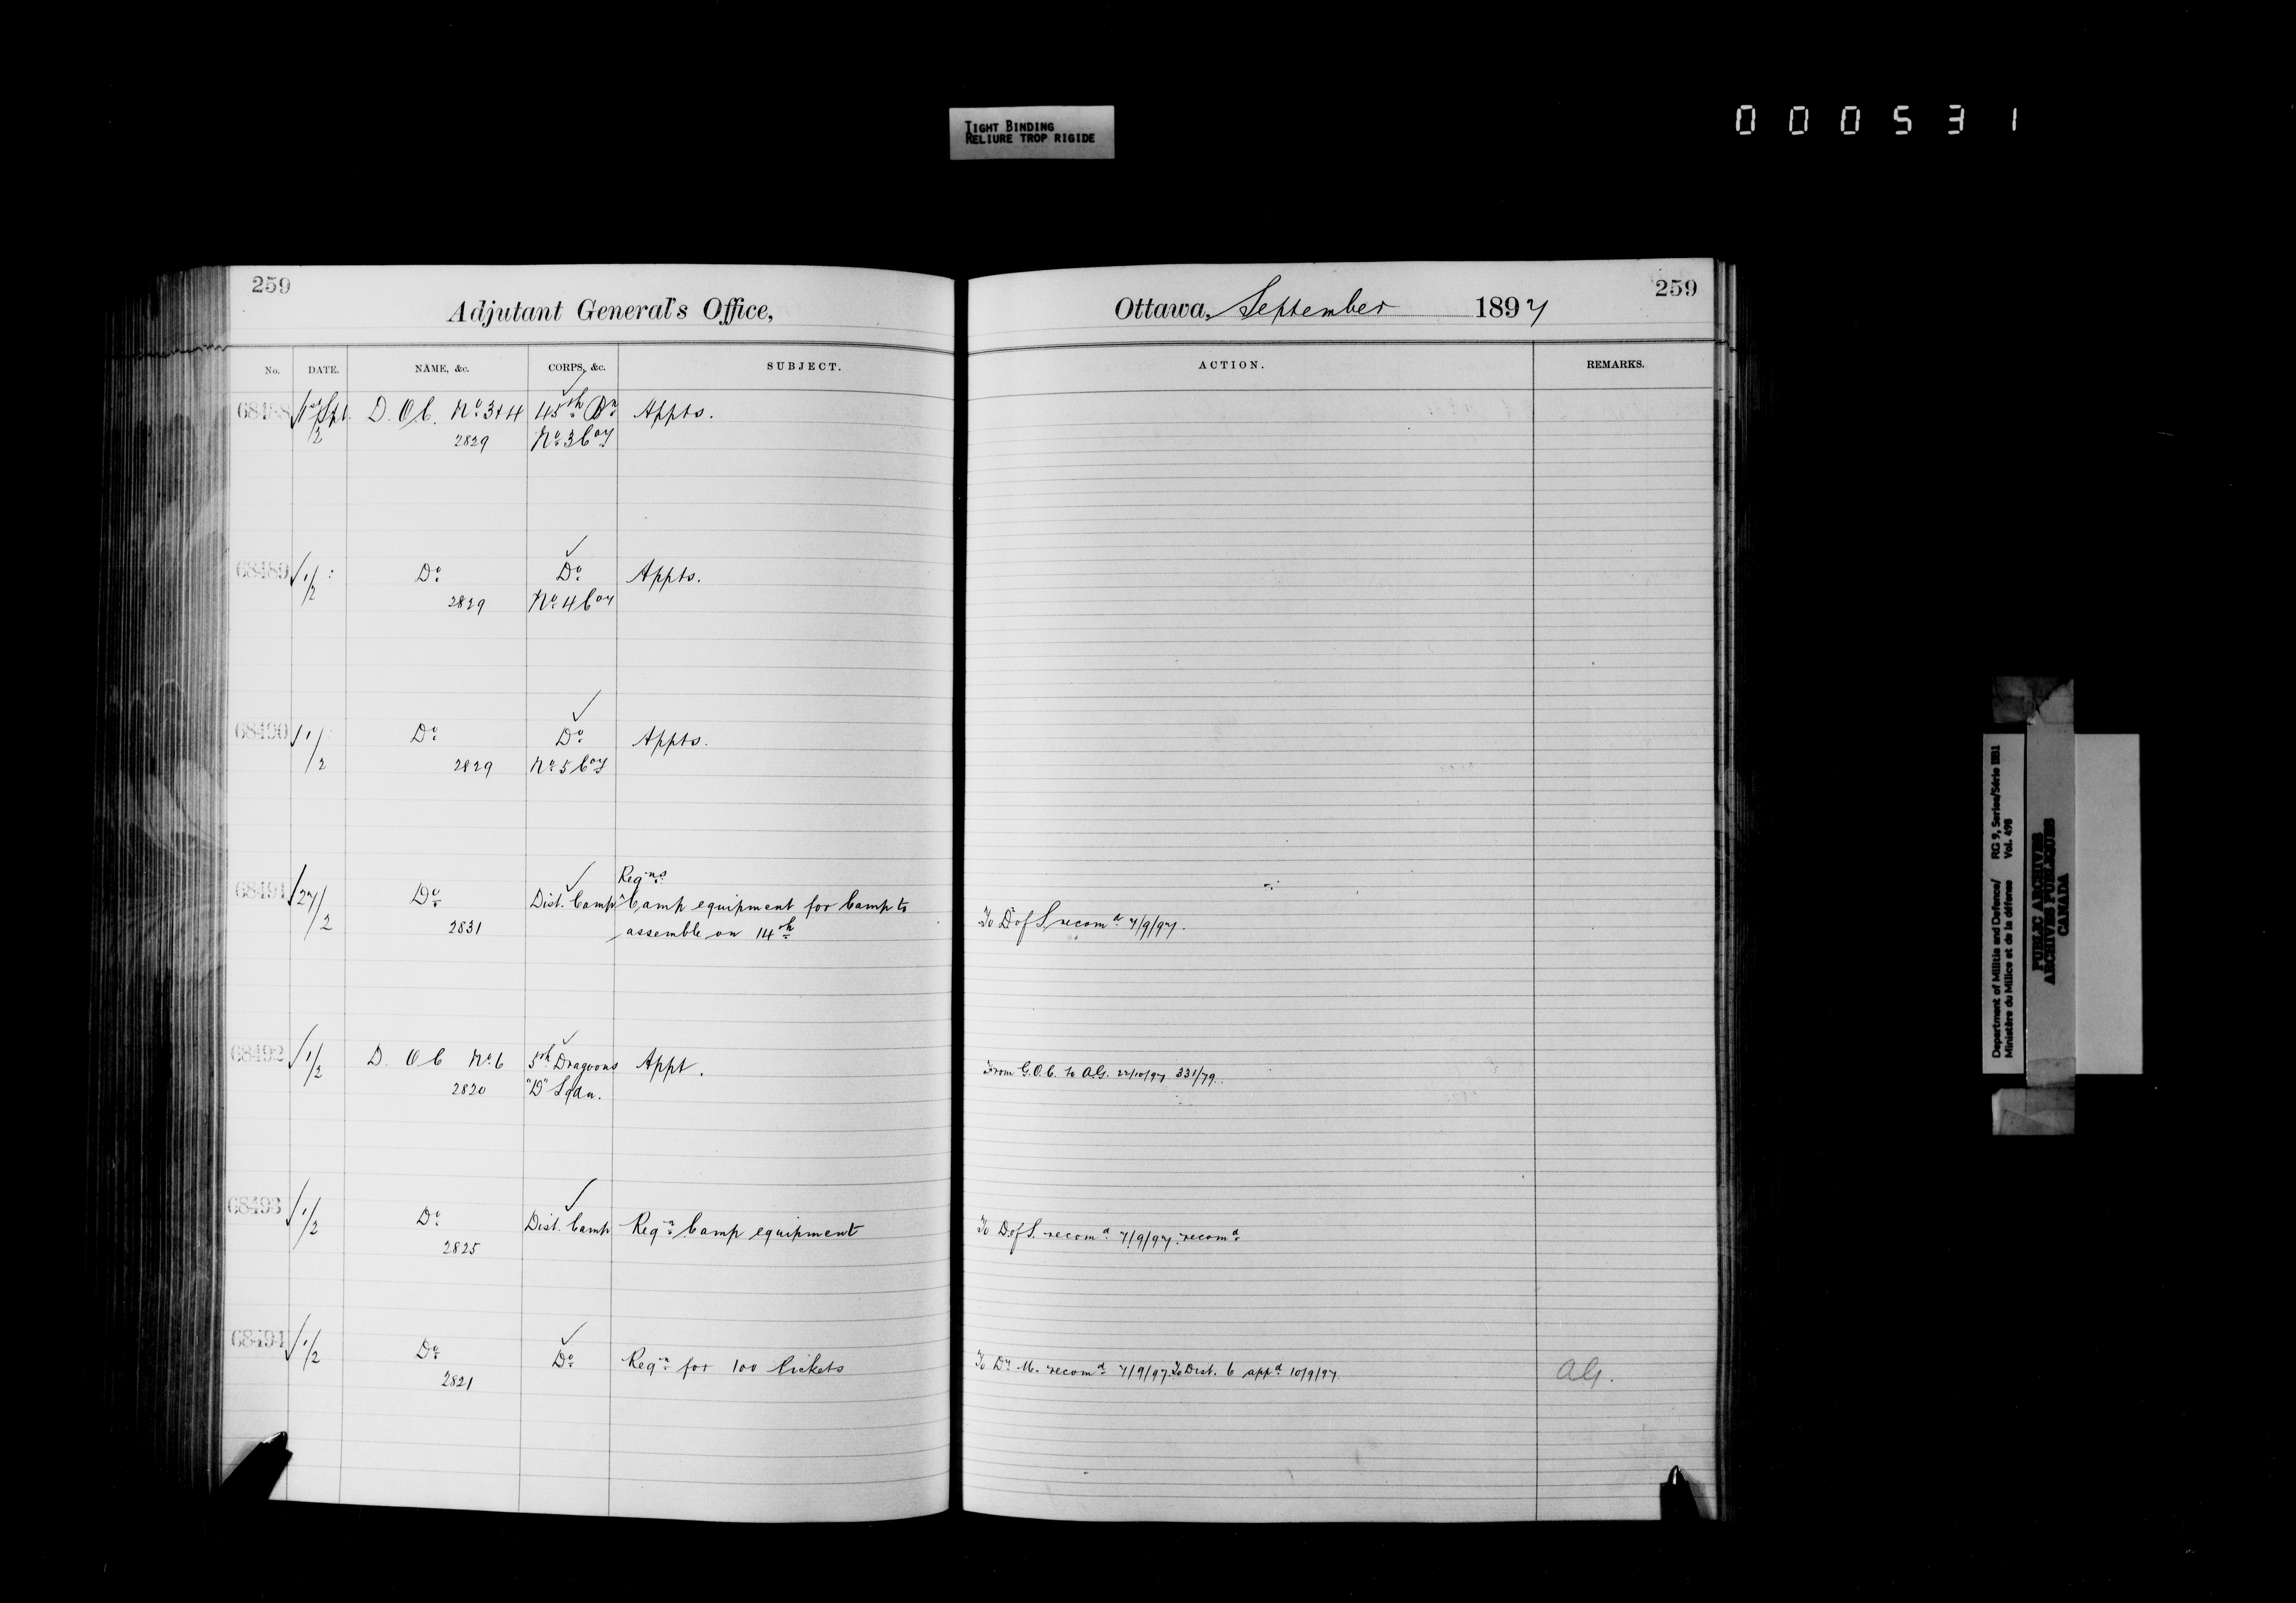 TIGHT BINDING
RELIURE TROP RIGIDE
000531
259
Adjutant General's Office,
No. DATE. NAME, &c. CORPS, &c. SUBJECT.
68488 1st Sept D.O.C. No. 3 & 4 45th Bn Appts.
2 2829 No. 3 Coy
68489 1/2 Do. Do. Appts.
2829 No. 4 Coy
68490 1/2 Do. Do. Appts.
2829 No. 5 Coy
Reqns
68491 27/2 Do. Dist. Camp Camp equipment for Camp to
2831 assemble on 14th
68492 1/2 D.O.C. No. 6 5th Dragoons Appt.
2820 "D" Sqdn.
68493 1/2 Do. Dist. Camp Reqn Camp equipment
2825
68494 1/2 Do. Do. Reqn for 100 tickets
2821
259
Ottawa, September 1897
ACTION. REMARKS.
To D of S recomd 7/9/97.
From G.O.C. to A.G. 22/10/97 331/79.
To D of S. recomd 7/9/97. recomd
To D. M. recomd 7/9/97. To Dist. 6 appd 10/9/97. AG.
Department of Militia and Defence/ RG 9, Series/Série IIB1
Ministère du Milice et de la défense Vol. 498
PUBLIC ARCHIVES
ARCHIVES PUBLIQUES
CANADA